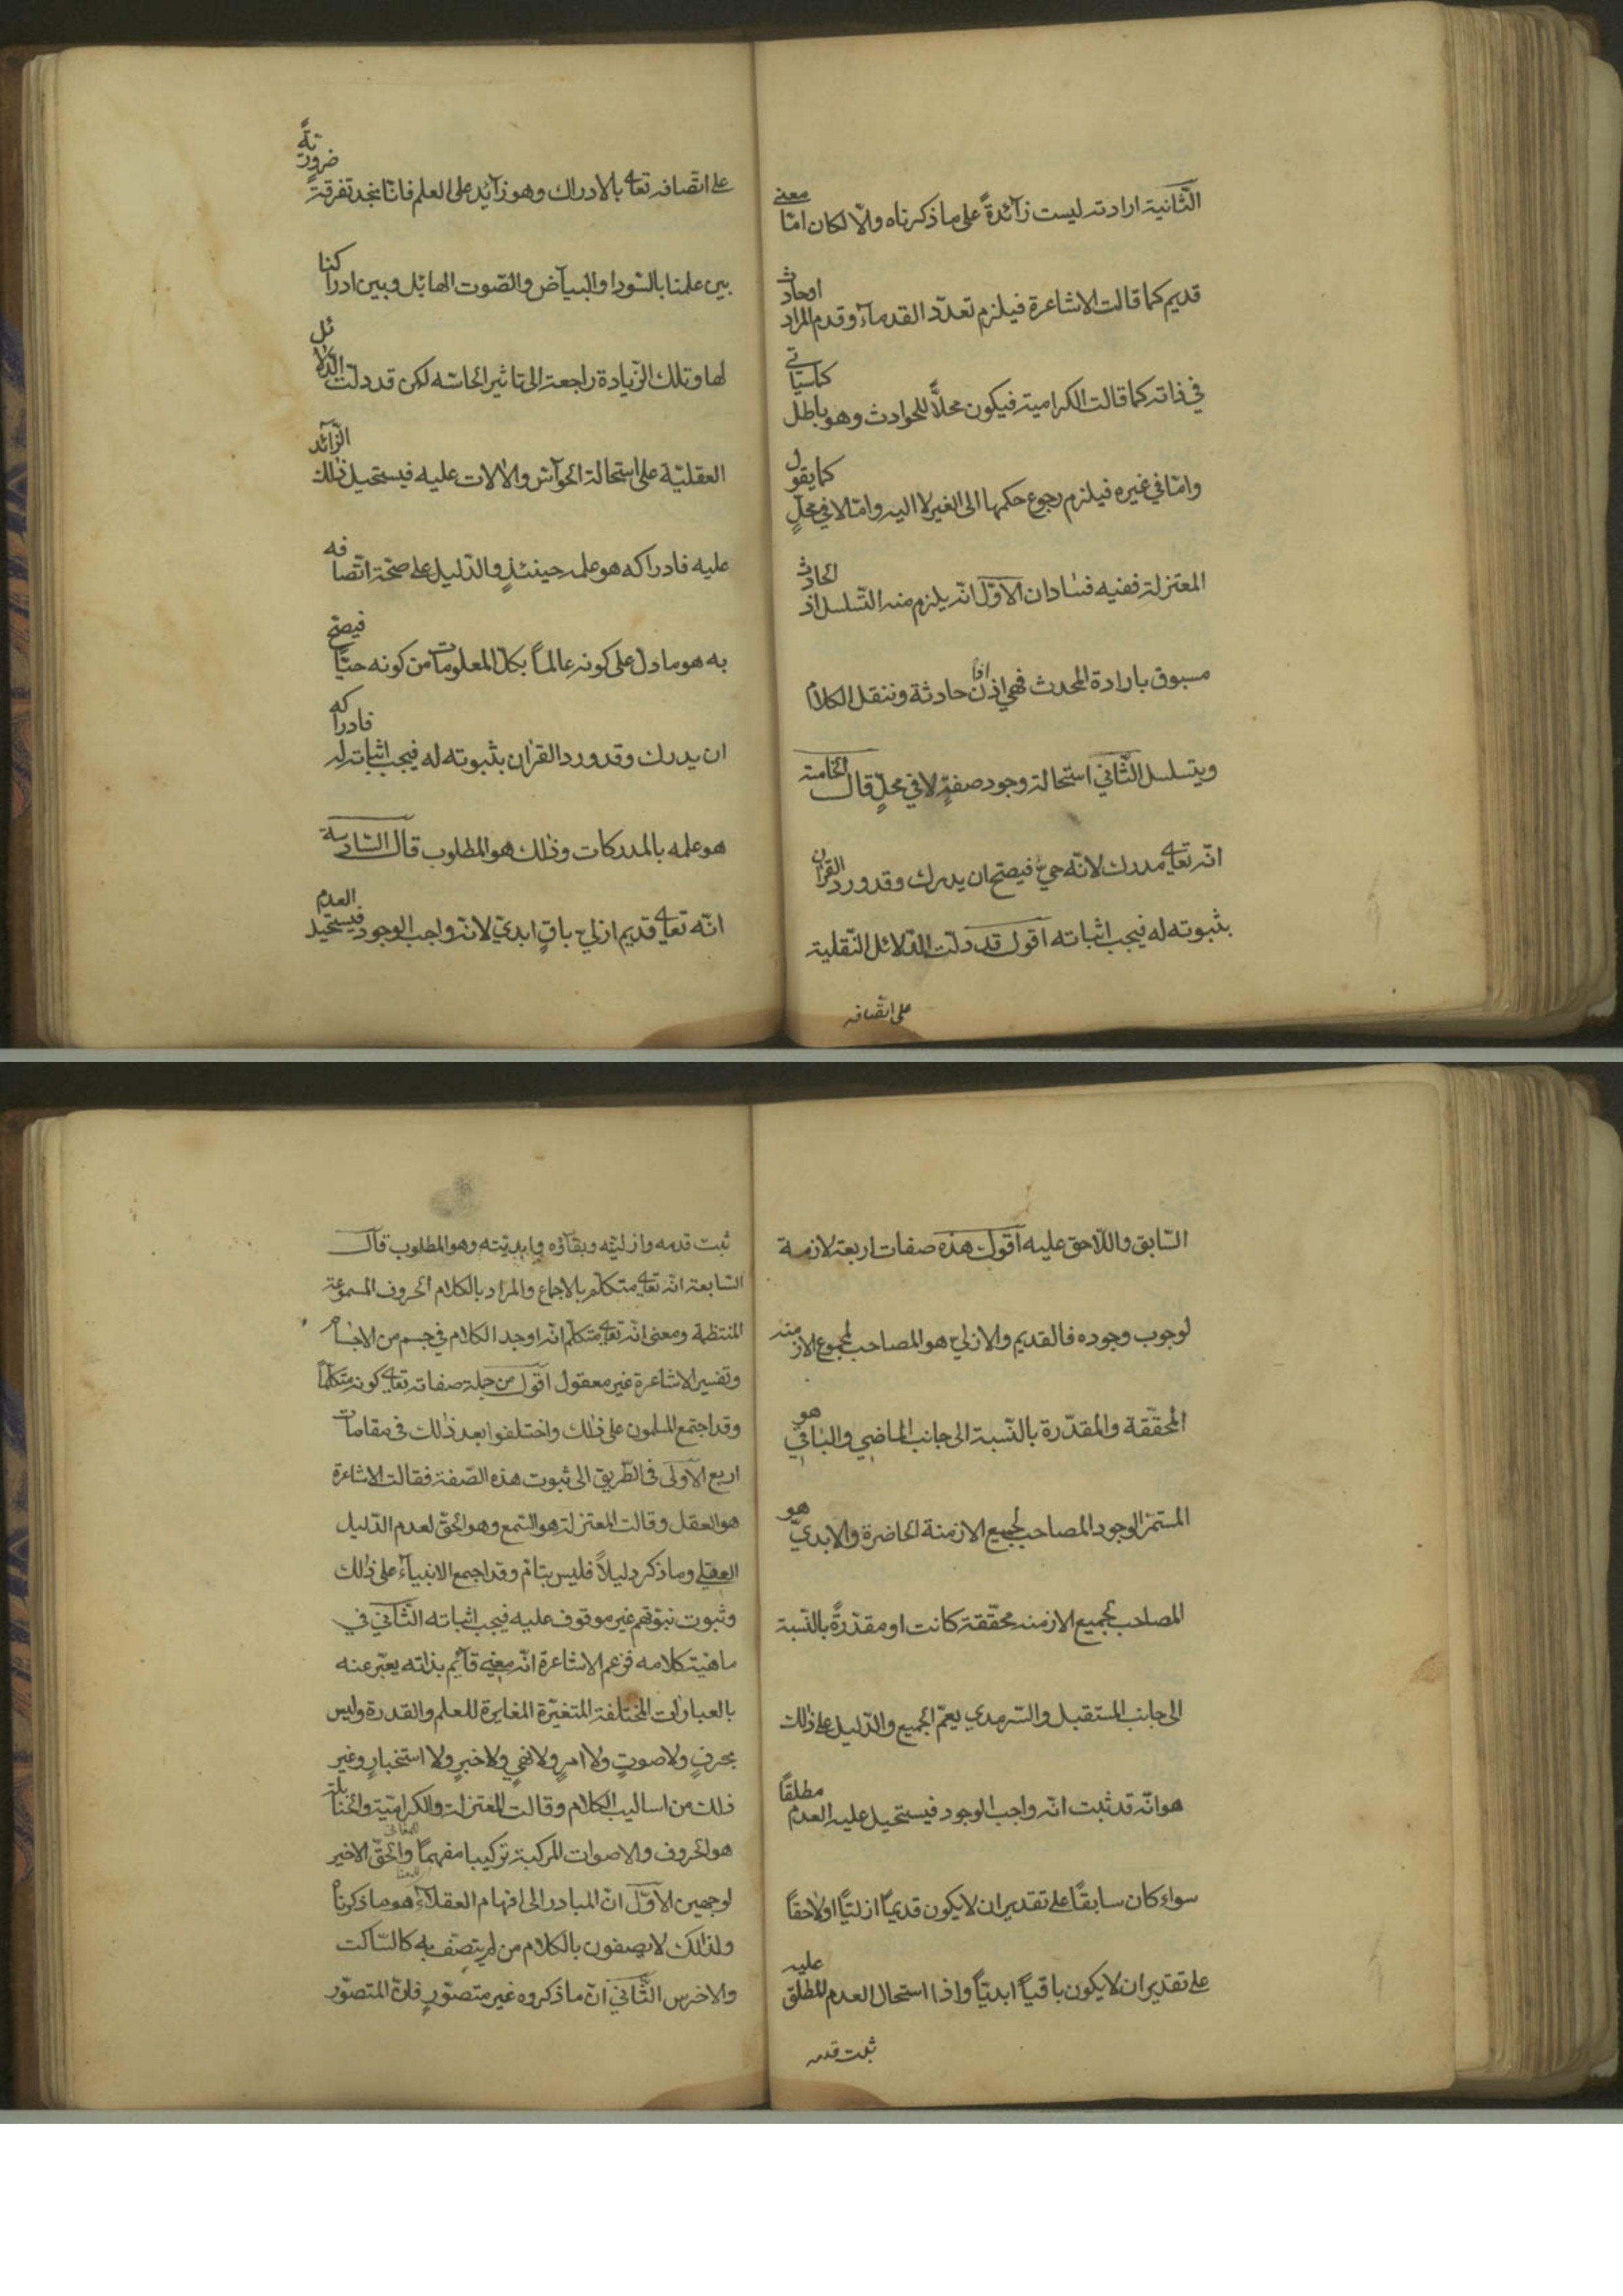 الثّانية ارادته ليست زآئدةً على ما ذكرناه والّا لكان امّا معنى
قديم كما قالت الاشاعرة فيلزم تعدّد القدمآء وقدم المراد او حادث
في ذاته كما قالت الكرامية فيكون محلّاً للحوادث وهو باطل كما سياتي
وامّا في غيره فيلزم رجوع حكمها الى الغير لا اليه وامّا لا في محلٍّ كما يقول
المعتزلة ففيه فسادان الاوّل انّه يلزم منه التّسلسل اذ الحادث
مسبوق بارادة المحدث فهي اذن حادثة وننقل الكلام
ويتسلسل الثّاني استحالة وجود صفةٍ لا في محلٍّ قال الخامسة
انّه تعالى مدرك لانّه حيّ فيصحّ ان يدرك وقد ورد القرآن
بثبوته له فيجب اثباته اقول قد دلّت الدّلائل النّقلية
على اتّصافه
على اتّصافه تعالى بالادراك وهو زآئد على العلم فانّا نجد تفرقةً ضروريّةً
بين علمنا بالسّواد والبيآض والصّوت الهائل وبين ادراكنا
لها وتلك الزّيادة راجعة الى تاثير الحاسّه لكن قد دلّت الدّلائل
العقليّة على استحالة الحوآسّ والالات عليه فيستحيل ذلك الزّآئد
عليه فادراكه هو علمه حينئذٍ والدّليل على صحّة اتّصافه
به هو ما دل على كونه عالماً بكلّ المعلومات من كونه حيّاً فيصحّ
ان يدرك وقد ورد القران بثبوته له فيجب اثباته له فادراكه
هو علمه بالمدركات وذلك هو المطلوب قال السّادسة
انّه تعالى قديم ازلي باقٍ ابديّ لانّه واجب الوجود فيستحيل العدم
السّابق واللّاحق عليه اقول هذه صفات اربعة لازمة
لوجوب وجوده فالقديم والازلي هو المصاحب لمجموع الازمنه
المحقّقة والمقدّرة بالنّسبة الى جانب الماضي والباقي هو
المستمرّ الوجود المصاحب لجميع الازمنة الحاضرة والابديّ هو
المصاحب لجميع الازمنه محقّقة كانت او مقدّرةً بالنّسبة
الى جانب المستقبل والسّرمدي يعمّ الجميع والدّليل على ذلك
هو انّه قد ثبت انّه واجب الوجود فيستحيل عليه العدم مطلقاً
سواء كان سابقاً على تقدير ان لا يكون قديماً ازليّاً او لاحقاً
على تقدير ان لا يكون باقياً ابديّاً واذا استحال العدم المطلق عليه
ثبت قدمه
ثبت قدمه وازليّته وبقآؤه وابديّته وهو المطلوب قال
السّابعة انّه تعالى متكلّم بالاجماع والمراد بالكلام الحروف المسموعة
المنتظمة ومعنى انّه تعالى متكلّم انّه اوجد الكلام في جسم من الاجسام
وتفسير الاشاعرة غير معقول اقول من جملة صفاته تعالى كونه متكلّماً
وقد اجتمع المسلمون على ذلك واختلفوا بعد ذلك في مقامات
اربع الاولى في الطّريق الى ثبوت هذه الصّفة فقالت الاشاعرة
هو العقل وقالت المعتزلة هو السّمع وهو الحقّ لعدم الدّليل
العقلي وما ذكر دليلاً فليس بتامّ وقد اجمع الانبيآء على ذلك
وثبوت نبوّتهم غير موقوف عليه فيجب اثباته الثّاني في
ماهيّة كلامه فزعم الاشاعرة انّه معنى قآئم بذاته يعبّر عنه
بالعبارات المختلفة المتغيّرة المغايرة للعلم والقدرة وليس
بحرفٍ ولا صوتٍ ولا امرٍ ولا نهيٍ ولا خبرٍ ولا استخبارٍ وغير
ذلك من اساليب الكلام وقالت المعتزلة والكراميّة والحنابلة
هو الحروف والاصوات المركبة تركيبا مفهماً والحقّ الاخير
لوجهين الاوّل انّ المبادر الى افهام العقلآء هو ما ذكرناه
ولذلك لا يصفون بالكلام من لم يتصّف به كالسّاكت
والاخرس الثّاني انّ ما ذكروه غير متصوّرٍ فانّ المتصوّر